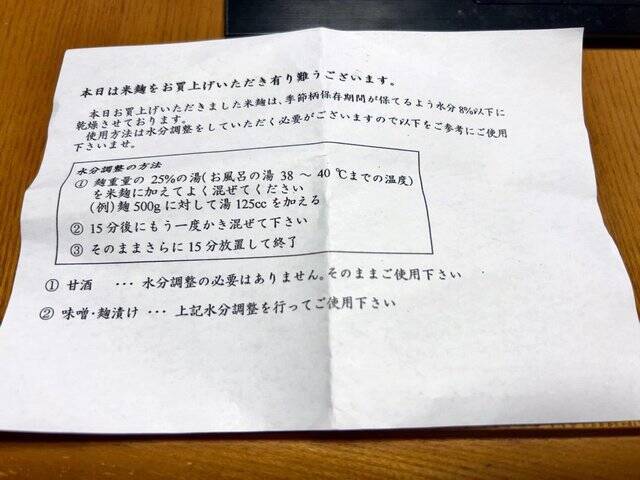 本日は米麹をお買上げいただき有り難うございます。
本日お買上げいただきました米麹は、季節柄保存期間が保てるよう水分8%以下に
乾燥させております。
使用方法は水分調整をしていただく必要がございますので以下をご参考にご使用
下さいませ。
水分調整の方法
① 麹重量の 25%の湯(お風呂の湯 38 ~ 40 ℃までの温度)
を米麹に加えてよく混ぜてください
(例)麹 500g に対して湯 125cc を加える
② 15 分後にもう一度かき混ぜて下さい
③ そのままさらに 15 分放置して終了
① 甘酒 ··· 水分調整の必要はありません。そのままご使用下さい
② 味噌・麹漬け ··· 上記水分調整を行ってご使用下さい